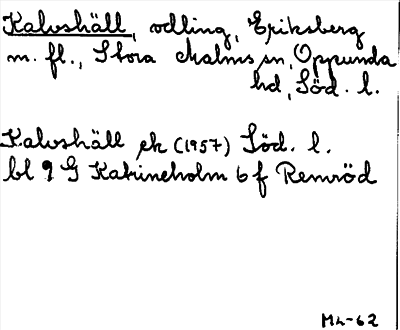 Kalvshäll, odling, Eriksberg
m. fl., Stora Malms sn, Oppunda
hd, Söd. l.
Kalvshäll ek (1957) Söd. l.
bl 9 G Katrineholm 6 f Remröd
ML-62